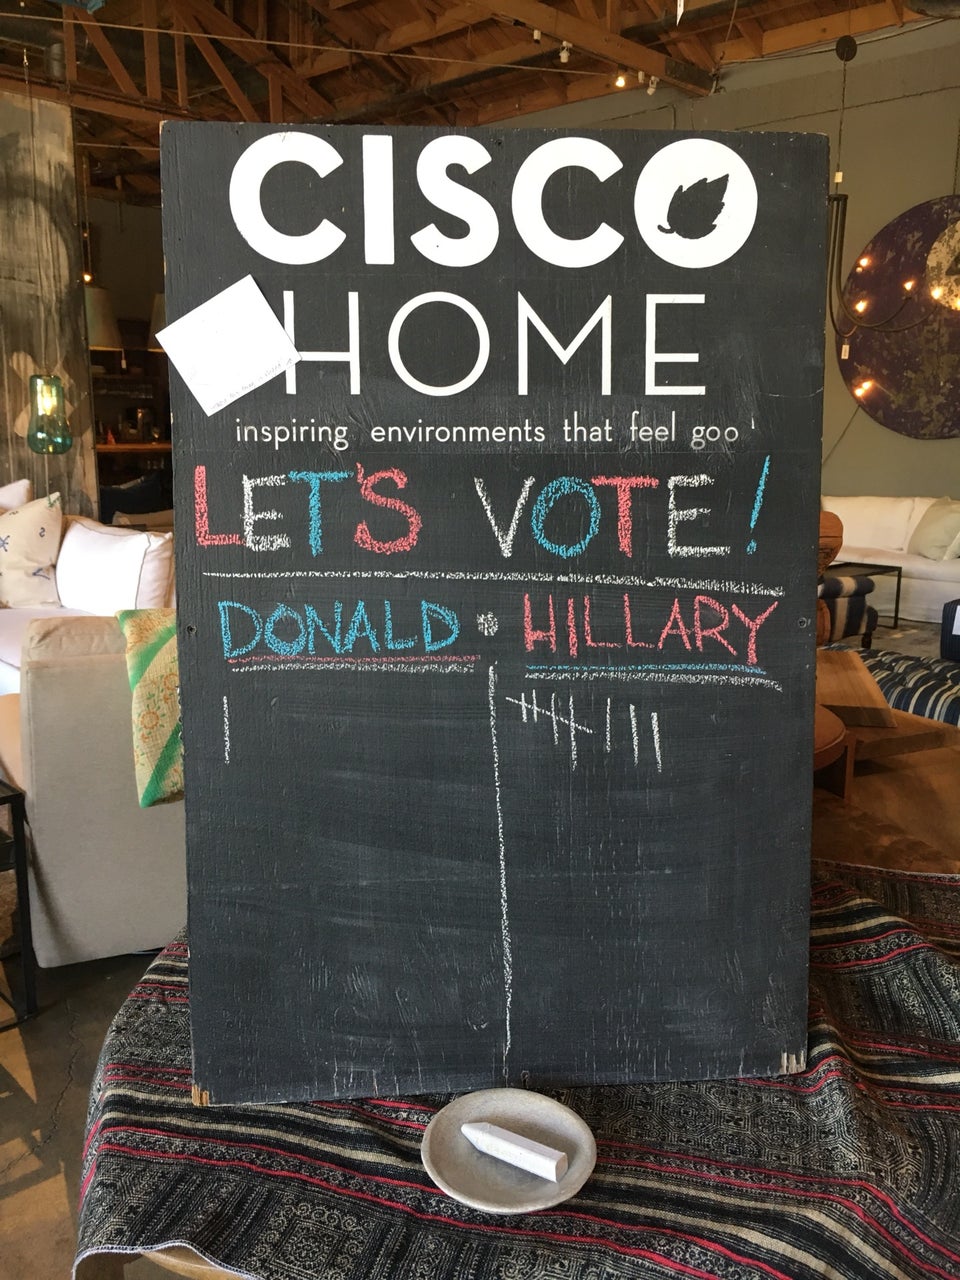 CISCO
HOME
inspiring environments that feel goo
LET'S VOTE!
DONALD • HILLARY